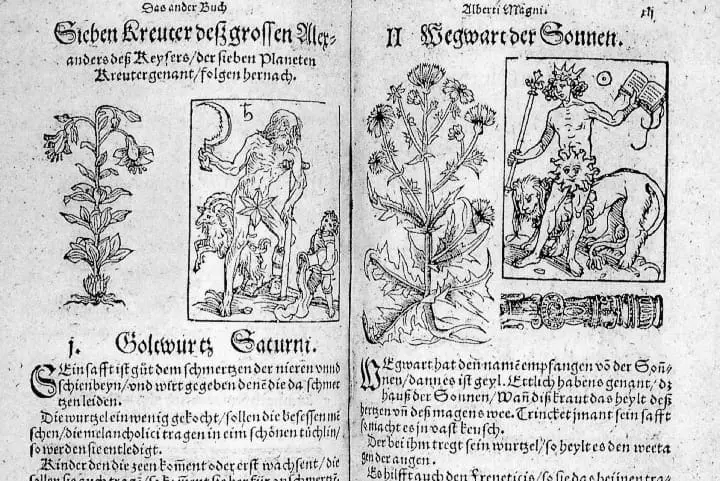 Das ander Buch
Sieben Kreuter deß grossen Alex-
anders deß Keysers/der sieben Planeten
Kreuter genant/folgen hernach.
♄
j. Goltwurtz Saturni.
SEin safft ist gůt dem schmertzen der nieren vnnd
schienbeyn/vnd wirt gegeben denē die da schmer
tzen leiden.
Die wurtzel ein wenig gekocht/sollen die besessen mē
schen/die melancholici tragen in eim schönen tüchlin/
so werden sie entledigt.
Kinder den die zeen kom̄ent oder erst wachsent/die
sollen sie auch tragē
Alberti Magni.
xij
II Wegwart der Sonnen.
☉
WEgwart hat den namē empfangen vō der Soñ-
nen/dann es ist geyl. Ettlich habens genant/dz
hauß der Sonnen/Wañ diß kraut das heylt deß
hertzen vñ deß magens wee. Trincket jmant sein safft
so macht es jn vast keusch.
Der bei ihm tregt sein wurtzel/so heylt es den weeta
gen der augen.
Es hilfft auch den Freneticis/so sie das bei jnen tra-